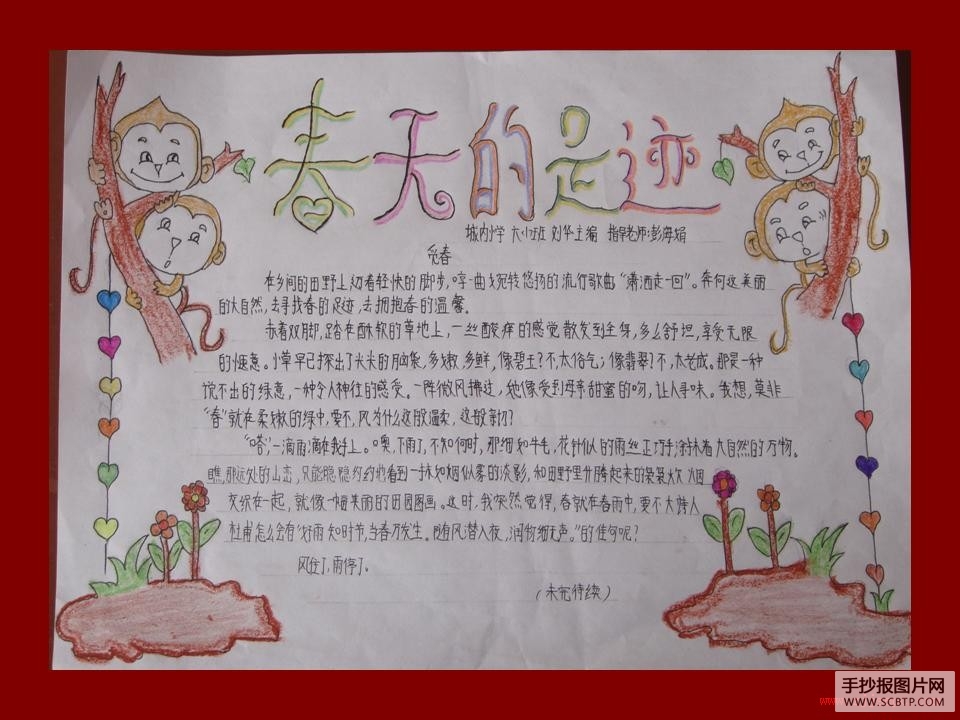 春天的足迹
城内小学 六(2)班 刘华主编 指导老师:彭海娟
觅春
在乡间的田野上迈着轻快的脚步,哼一曲婉转悠扬的流行歌曲“潇洒走一回”。奔向这美丽
的大自然,去寻找春的足迹,去拥抱春的温馨。
赤着双脚,踏在酥软的草地上,一丝酸痒的感觉散发到全身,多么舒坦,享受无限
的惬意。小草早已探出了尖尖的脑袋,多嫩,多鲜,像碧玉?不,太俗气;像翡翠?不,太老成。那是一种
说不出的绿意,一种令人神往的感受。一阵微风拂过,他像受到母亲甜蜜的吻,让人寻味。我想,莫非
“春”就在柔嫩的绿中,要不,风为什么这般温柔,这般亲切?
“嗒”,一滴雨滴在我手上。噢,下雨了,不知何时,那细如牛毛,花针似的雨丝正巧手涂抹着大自然的万物。
瞧,那远处的山峦,只能隐隐约约地看到一抹如烟似雾的淡影,和田野里升腾起来的袅袅炊烟
交织在一起,就像一幅美丽的田园图画。这时,我突然觉得,春就在春雨中,要不大诗人
杜甫怎么会有“好雨知时节,当春乃发生。随风潜入夜,润物细无声。”的佳句呢?
风住了,雨停了。
(未完待续)
手抄报图片网
WWW.SCBTP.COM